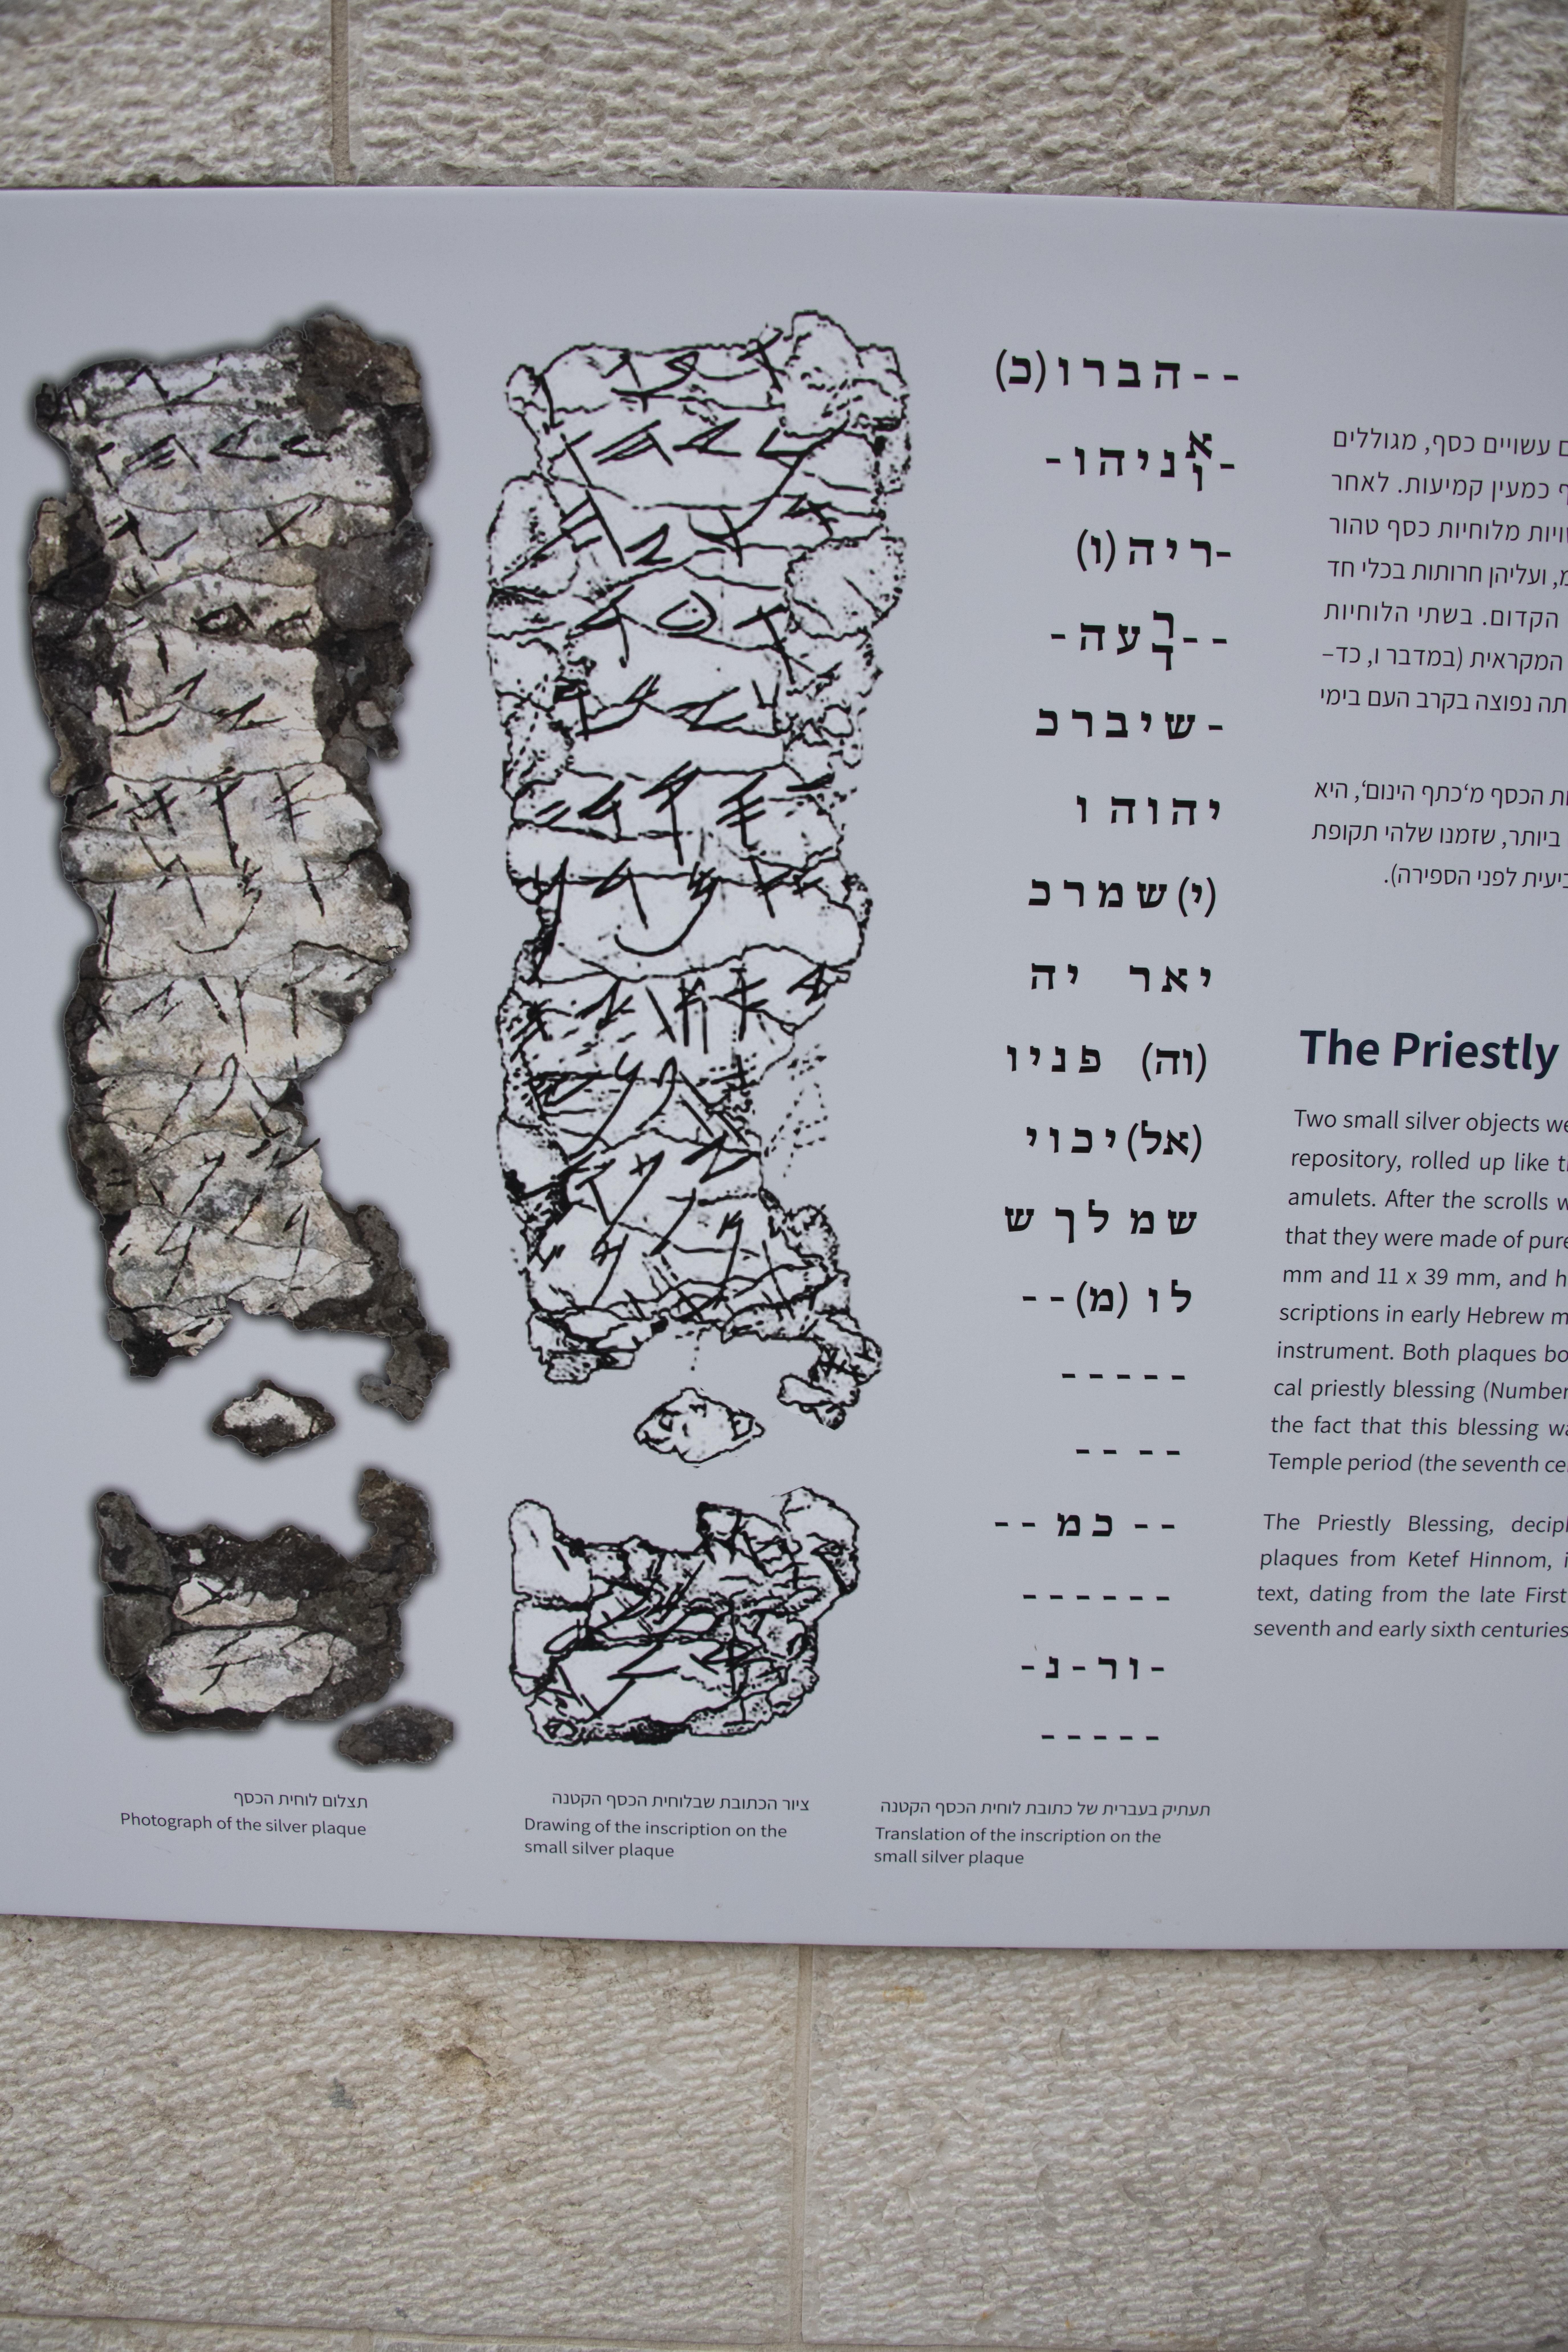 --הברו(כ)
-אוניהו-
-ריה(ו)
--רדעה-
-שיברכ
יהוה ו
(י)שמרכ
יאר יה
(וה) פניו
(אל)יכוי
שמ לך ש
לו (מ)--
-----
-- --
-- כמ --
------
-ור-נ-
-----
ם עשויים כסף, מגוללים
כמעין קמיעות. לאחר
מלוחיות כסף טהור
ועליהן חרותות בכלי חד
הקדום. בשתי הלוחיות
המקראית (במדבר ו, כד–
נפוצה בקרב העם בימי
הכסף מ'כתף הינום', היא
ביותר, שזמנו שלהי תקופת
לפני הספירה).
The Priestly
Two small silver objects we
repository, rolled up like t
amulets. After the scrolls w
that they were made of pure
mm and 11 x 39 mm, and h
scriptions in early Hebrew m
instrument. Both plaques bo
cal priestly blessing (Number
the fact that this blessing wa
Temple period (the seventh ce
The Priestly Blessing, deciph
plaques from Ketef Hinnom, i
text, dating from the late First
seventh and early sixth centuries
תצלום לוחית הכסף
Photograph of the silver plaque
ציור הכתובת שבלוחית הכסף הקטנה
Drawing of the inscription on the
small silver plaque
תעתיק בעברית של כתובת לוחית הכסף הקטנה
Translation of the inscription on the
small silver plaque